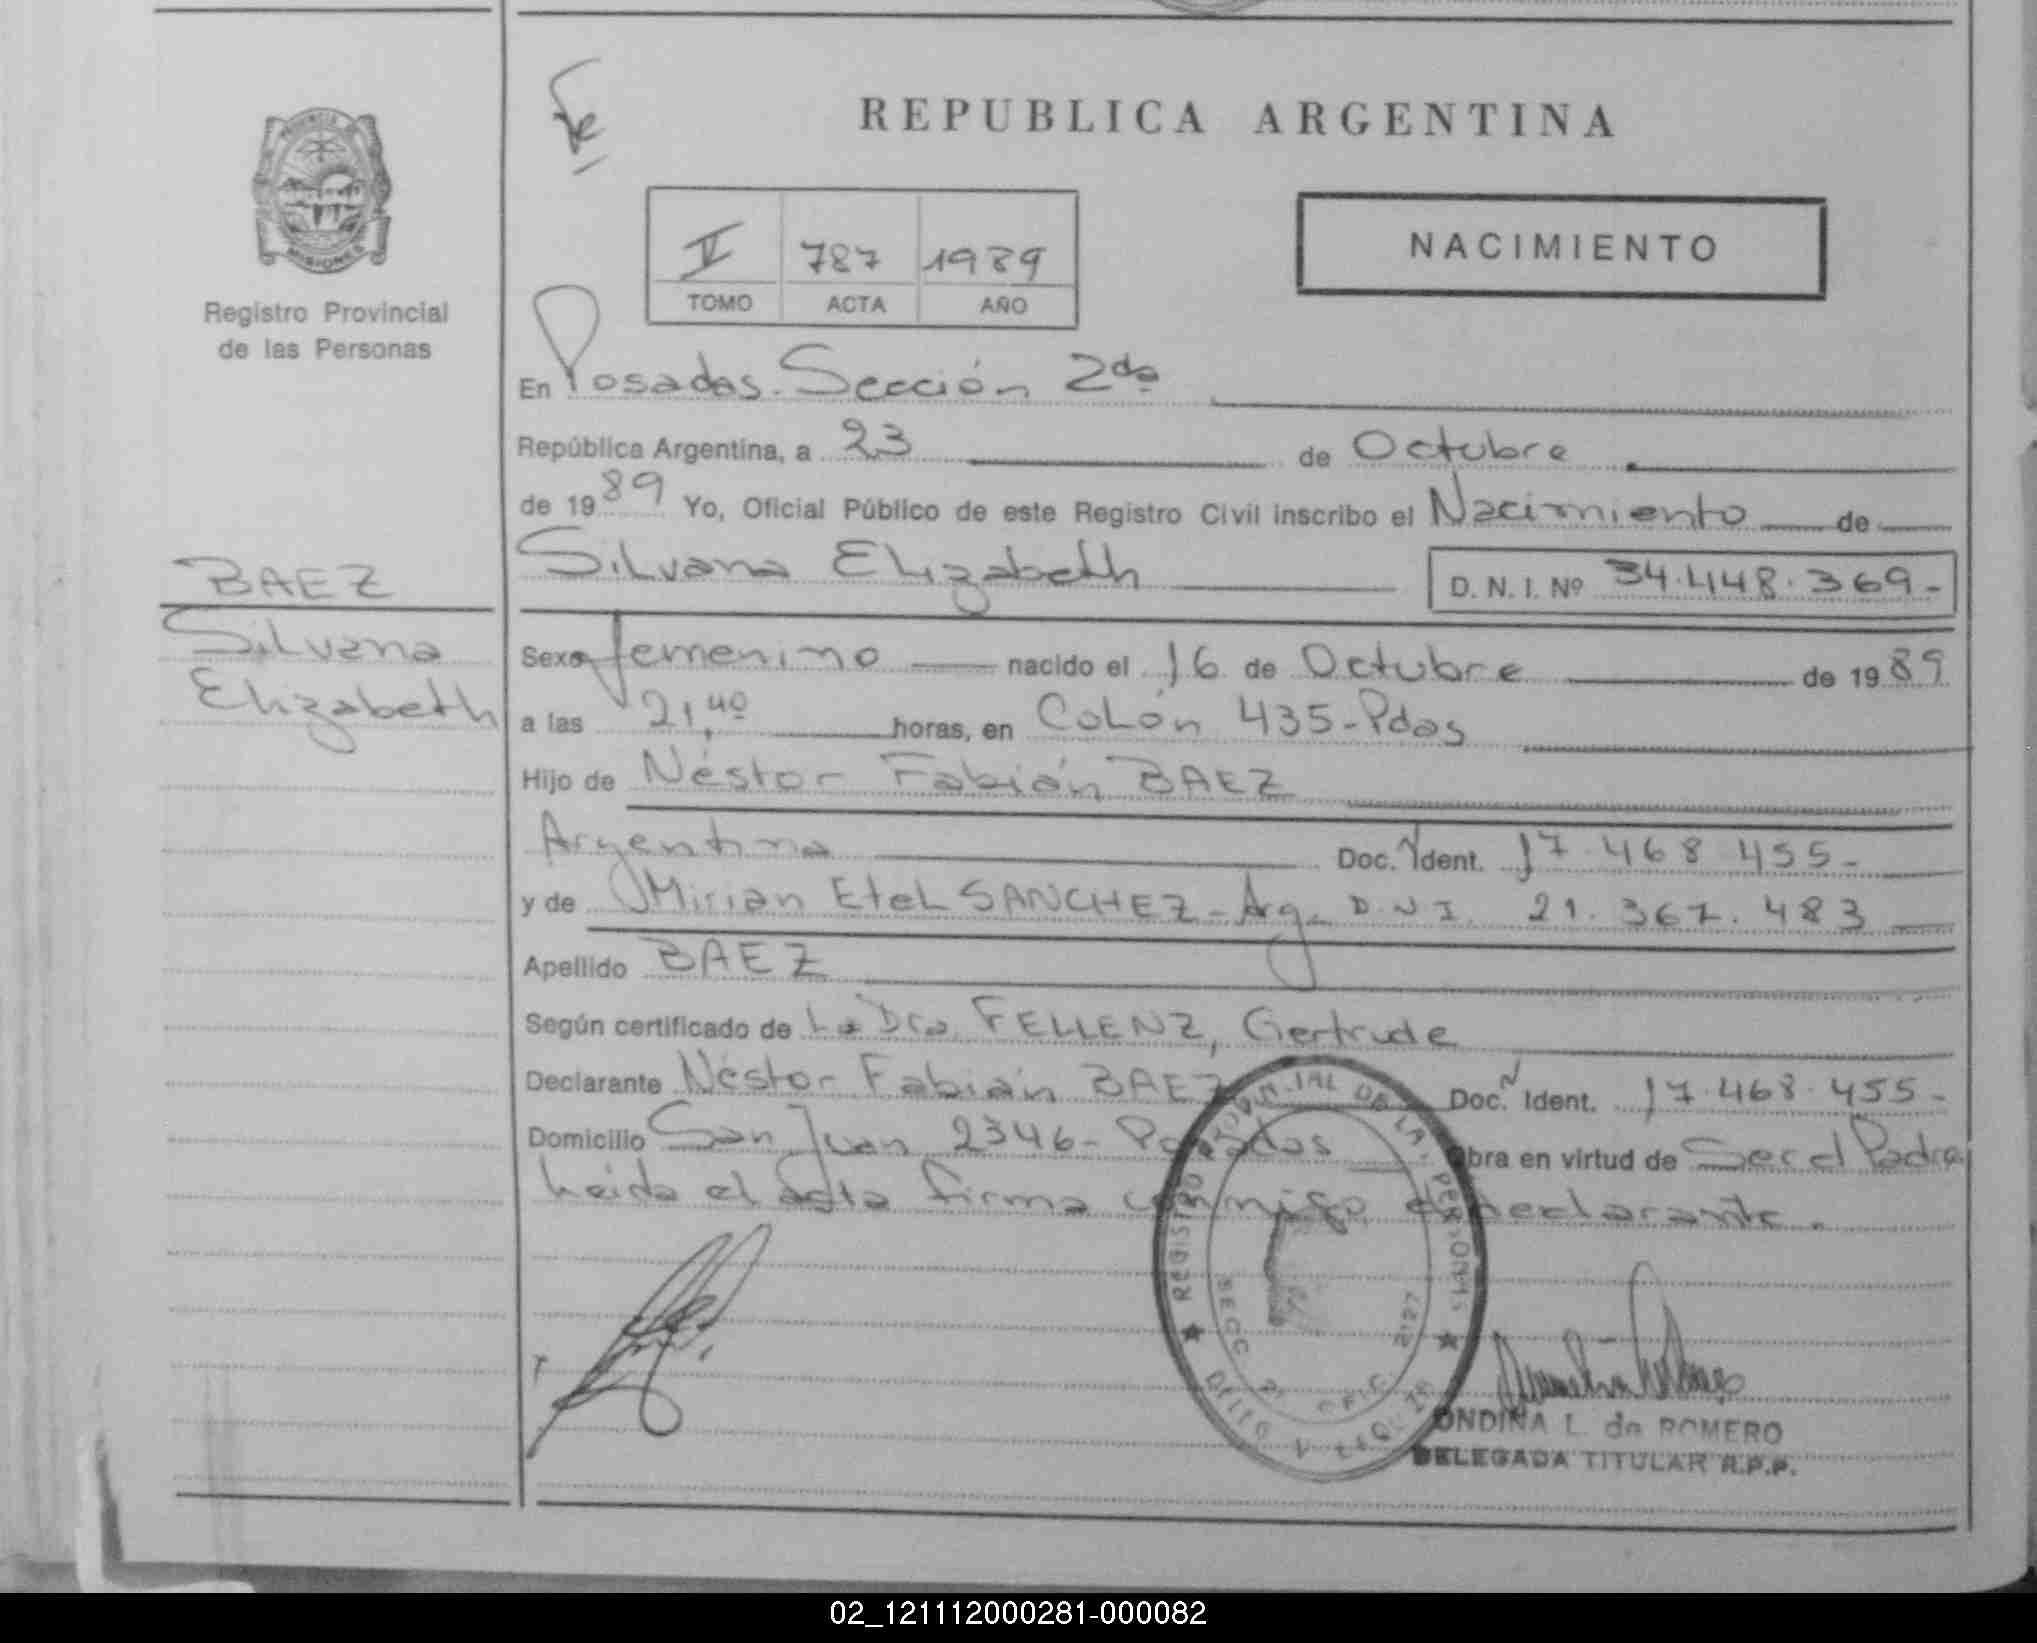 REPUBLICA ARGENTINA
PROVINCIA DE
MISIONES
Registro Provincial
de las Personas
V 787 1989
TOMO ACTA AÑO
NACIMIENTO
En Posadas. Sección 2da
República Argentina, a 23 de Octubre
de 1989 Yo, Oficial Público de este Registro Civil inscribo el Nacimiento de
BAEZ
Silvana
Elizabeth
Silvana Elizabeth D. N. I. Nº 34.448.369-
Sexo femenino nacido el 16 de Octubre de 1989
a las 21,40 horas, en Colón 435-Pdas
Hijo de Néstor Fabián BAEZ
Argentina Doc. Ident. 17.468.455-
y de Mirian Etel SANCHEZ- Arg- D.N.I. 21.367.483
Apellido BAEZ
Según certificado de La Dra. FELLENZ, Gertrude
Declarante Néstor Fabián BAEZ Doc. Ident. 17.468.455-
Domicilio San Juan 2346- Posadas Obra en virtud de Ser el Padre
Leida el acta firma conmigo el declarante.
REGISTRO PROVINCIAL DE LAS PERSONAS
SECC OFIC 2127
ONDINA L. de ROMERO
DELEGADA TITULAR R.P.P.
02_121112000281-000082